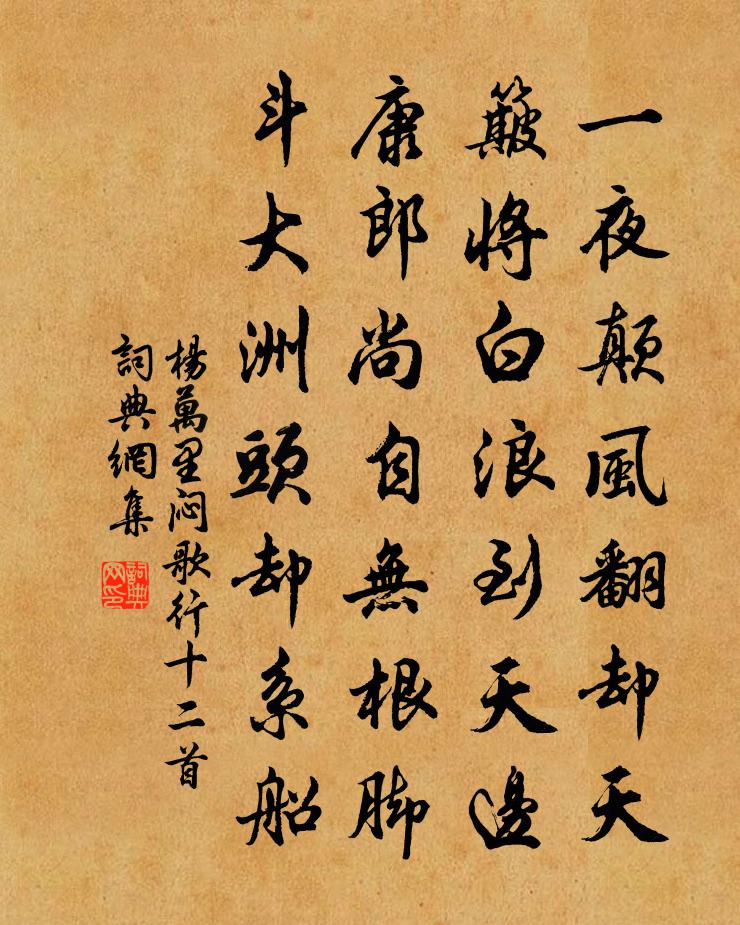 一夜顛風翻却天
簸將白浪到天邊
康郎尚自無根脚
斗大洲頭却系船
楊萬里悶歌行十二首
詞典網集
詞典网印